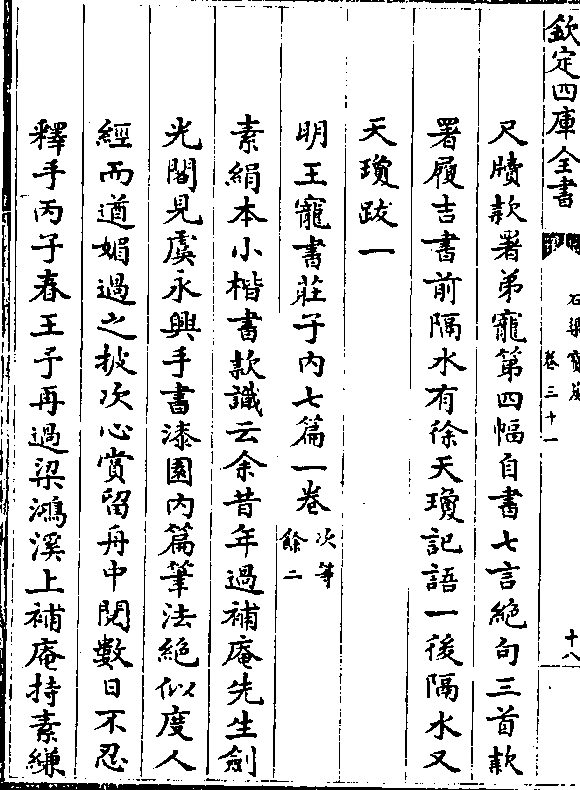 欽定四庫全書
石渠寶笈
卷三十一
十八
尺牘款署弟寵第四幅自書七言絶句三首款
署履吉書前隔水有徐天瓊記語一後隔水又
天瓊跋一
明王寵書莊子内七篇一卷次等
餘二
素絹本小楷書款識云余昔年過補庵先生劍
光閣見虞永興手書漆園内篇筆法絶似度人
經而遒媚過之披次心賞留舟中閱數日不忍
釋手丙子春王予再過梁鴻溪上補庵持素縑